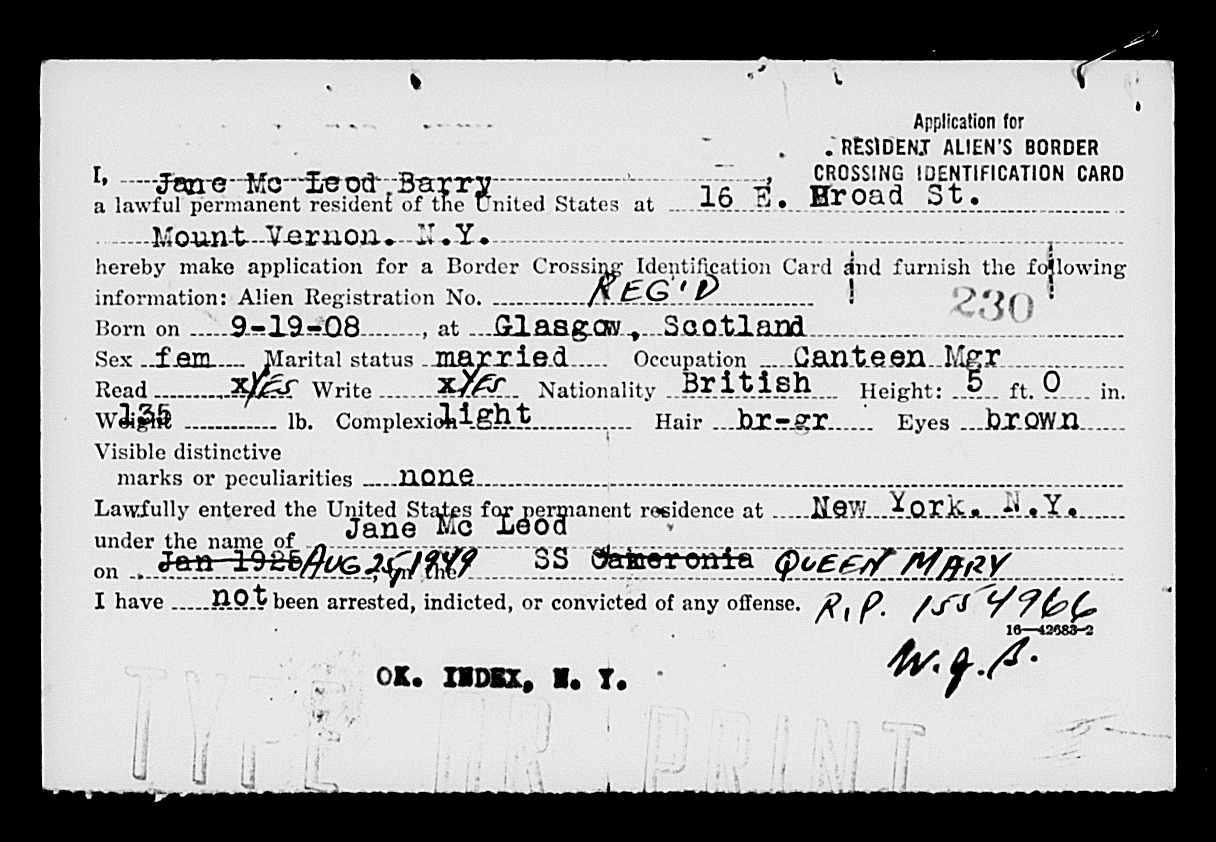 Application for
RESIDENT ALIEN'S BORDER
CROSSING IDENTIFICATION CARD
I, Jane Mc Leod Barry,
a lawful permanent resident of the United States at 16 E. Broad St.
Mount Vernon. N.Y.
hereby make application for a Border Crossing Identification Card and furnish the following
information: Alien Registration No. REG'D 230
Born on 9-19-08, at Glasgow, Scotland
Sex fem Marital status married Occupation Canteen Mgr
Read xYES Write xYES Nationality British Height: 5 ft. 0 in.
Weight 135 lb. Complexion light Hair br-gr Eyes brown
Visible distinctive
marks or peculiarities none
Lawfully entered the United States for permanent residence at New York. N.Y.
under the name of Jane Mc Leod
on Jan 1925 AUG 25, 1949, on the SS Cameronia QUEEN MARY
I have not been arrested, indicted, or convicted of any offense. R.P. 1554966
16—42683-2
W.J.B.
OK. INDEX, N. Y.
TYPE OR PRINT